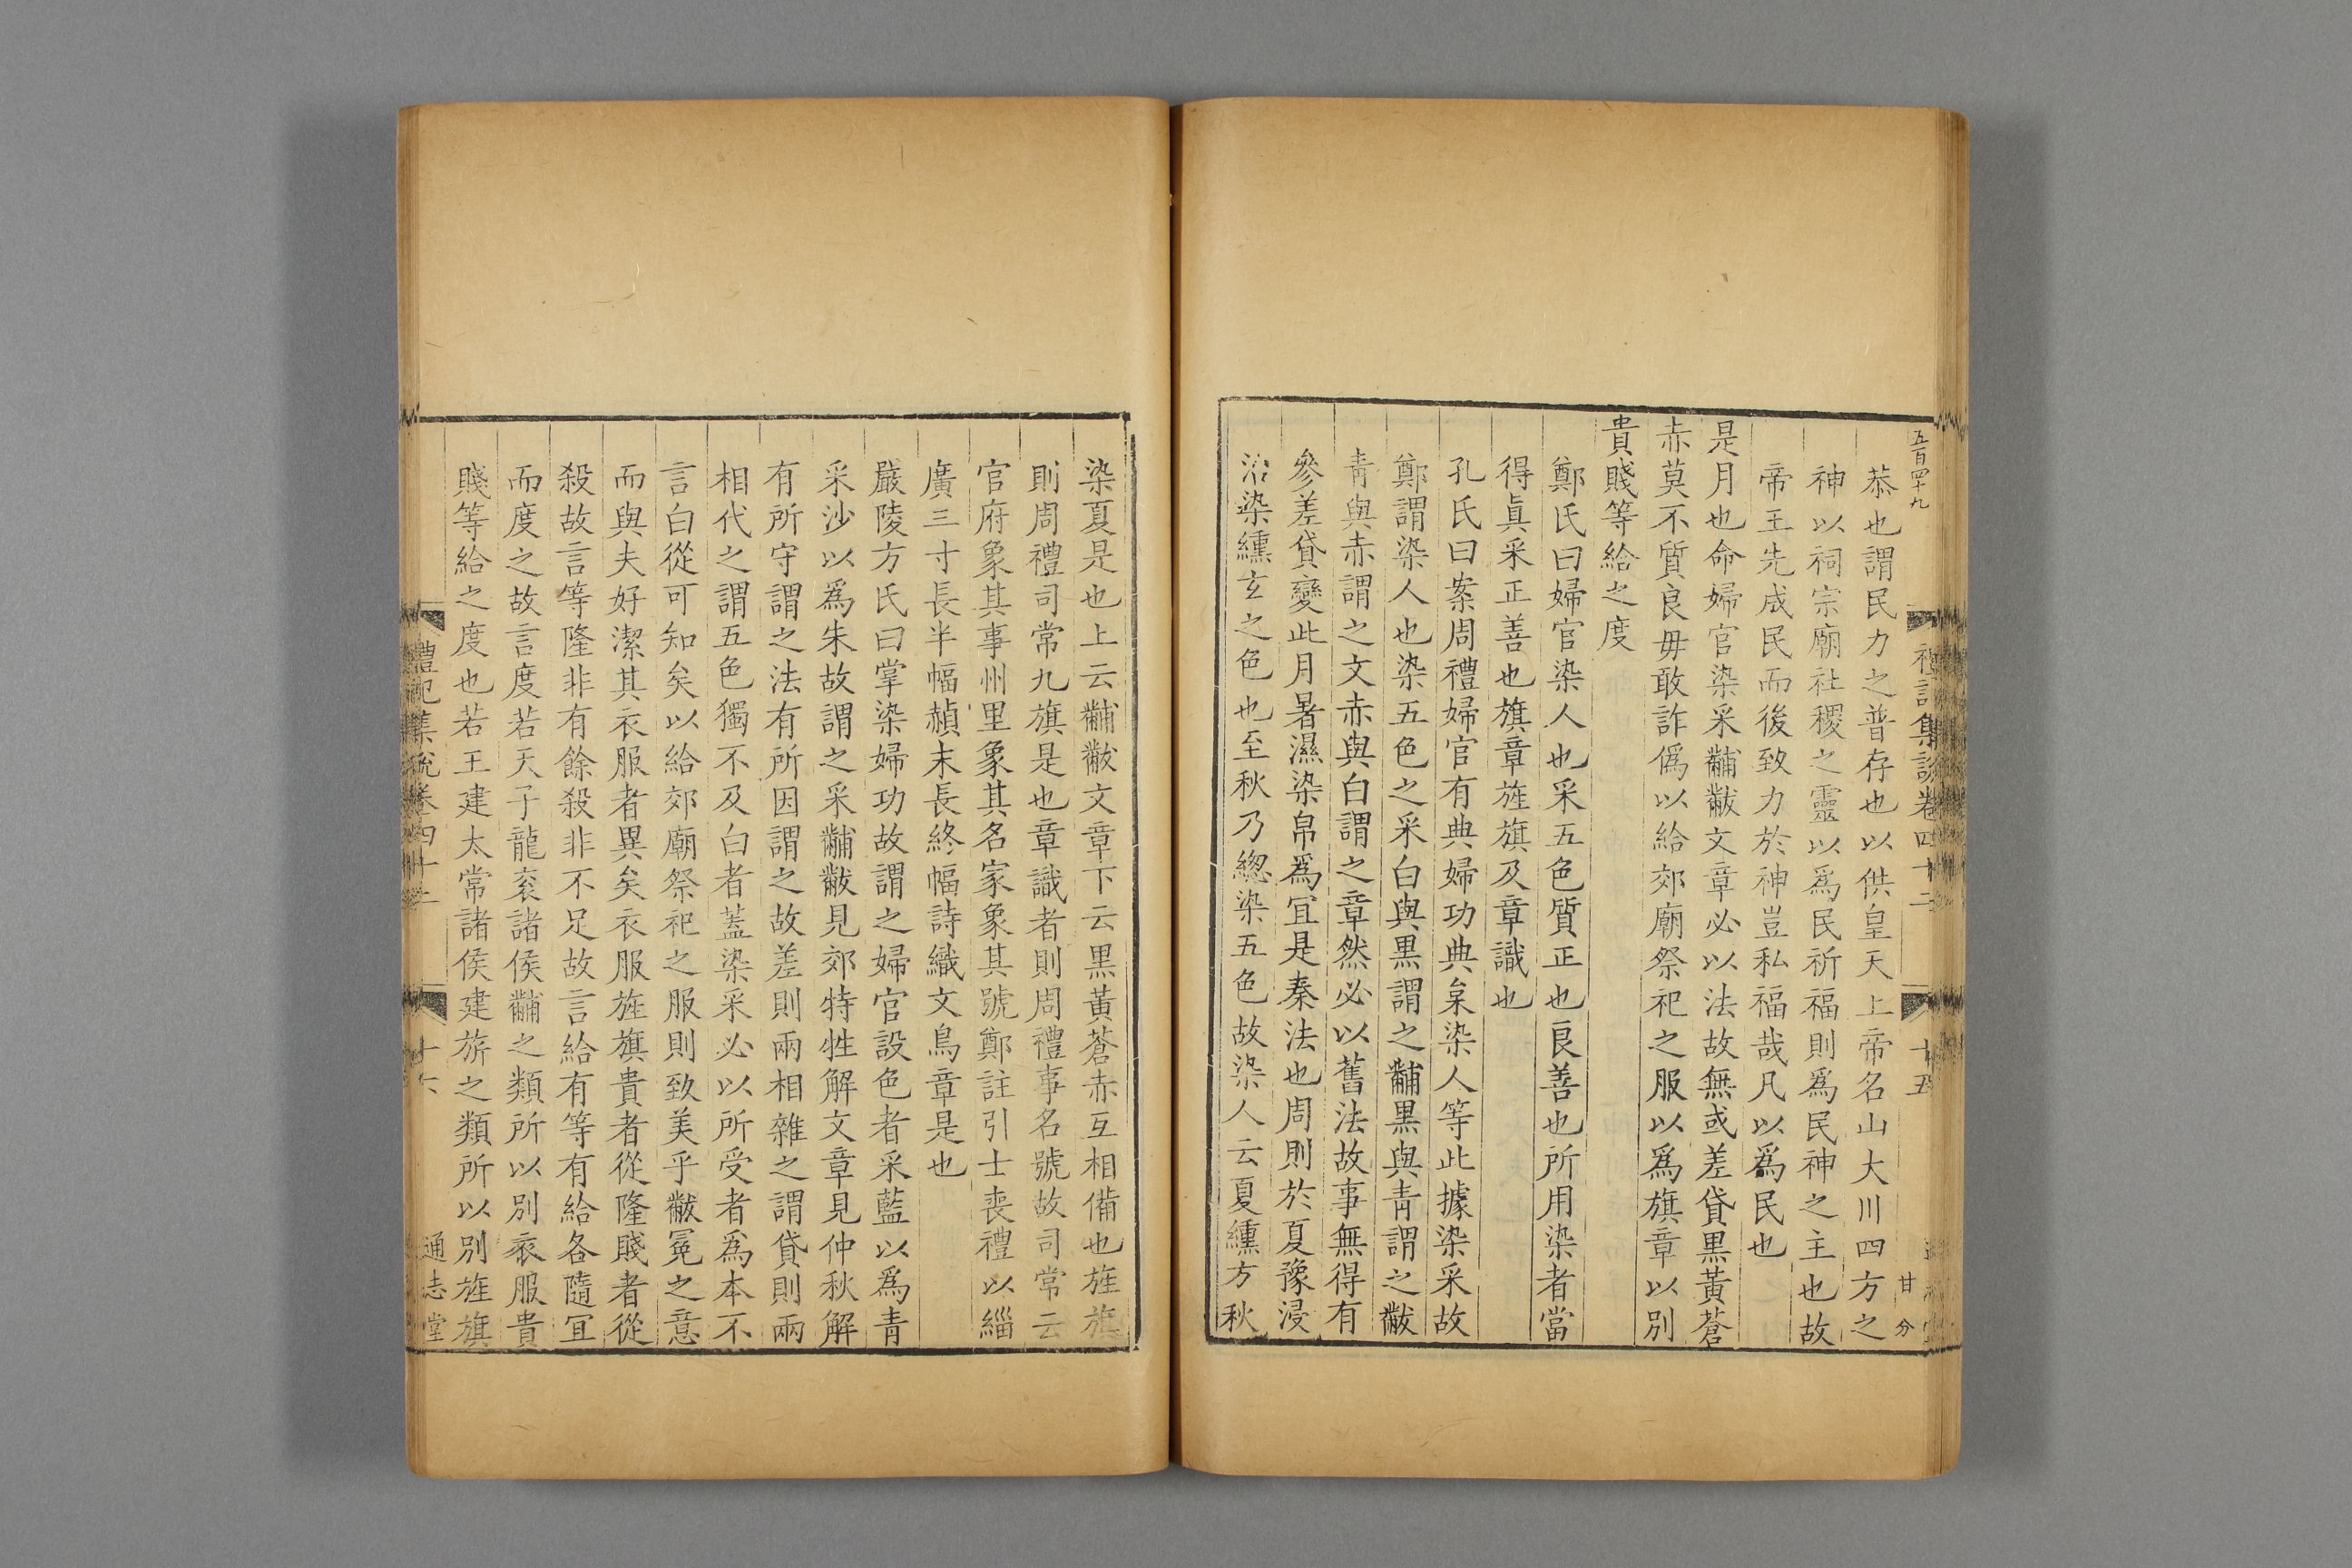 五百四十九
禮記集說卷四十二
十五
甘
分
恭也謂民力之普存也以供皇天上帝名山大川四方之
神以祠宗廟社稷之靈以爲民祈福則爲民神之主也故
帝王先成民而後致力於神豈私福哉凡以爲民也
是月也命婦官染采黼黻文章必以法故無或差貸黑黃蒼
赤莫不質良毋敢詐僞以給郊廟祭祀之服以爲旗章以別
貴賤等給之度
鄭氏曰婦官染人也采五色質正也良善也所用染者當
得眞采正善也旗章旌旗及章識也
孔氏曰案周禮婦官有典婦功典枲染人等此據染采故
鄭謂染人也染五色之采白與黑謂之黼黑與青謂之黻
青與赤謂之文赤與白謂之章然必以舊法故事無得有
參差貸變此月暑濕染帛爲宜是秦法也周則於夏豫浸
沿染纁玄之色也至秋乃緫染五色故染人云夏纁方秋
染夏是也上云黼黻文章下云黑黃蒼赤互相備也旌旗
則周禮司常九旗是也章識者則周禮事名號故司常云
官府象其事州里象其名家象其號鄭註引士喪禮以緇
廣三寸長半幅赬末長終幅詩織文鳥章是也
嚴陵方氏曰掌染婦功故謂之婦官設色者采藍以爲青
采沙以爲朱故謂之采黼黻見郊特牲解文章見仲秋解
有所守謂之法有所因謂之故差則兩相雜之謂貸則兩
相代之謂五色獨不及白者蓋染采必以所受者爲本不
言白從可知矣以給郊廟祭祀之服則致美乎黻冕之意
而與夫好潔其衣服者異矣衣服旌旗貴者從隆賤者從
殺故言等隆非有餘殺非不足故言給有等有給各隨宜
而度之故言度若天子龍衮諸侯黼之類所以別衣服貴
賤等給之度也若王建太常諸侯建旂之類所以別旌旗
禮記集說卷四十二
十六
通志堂